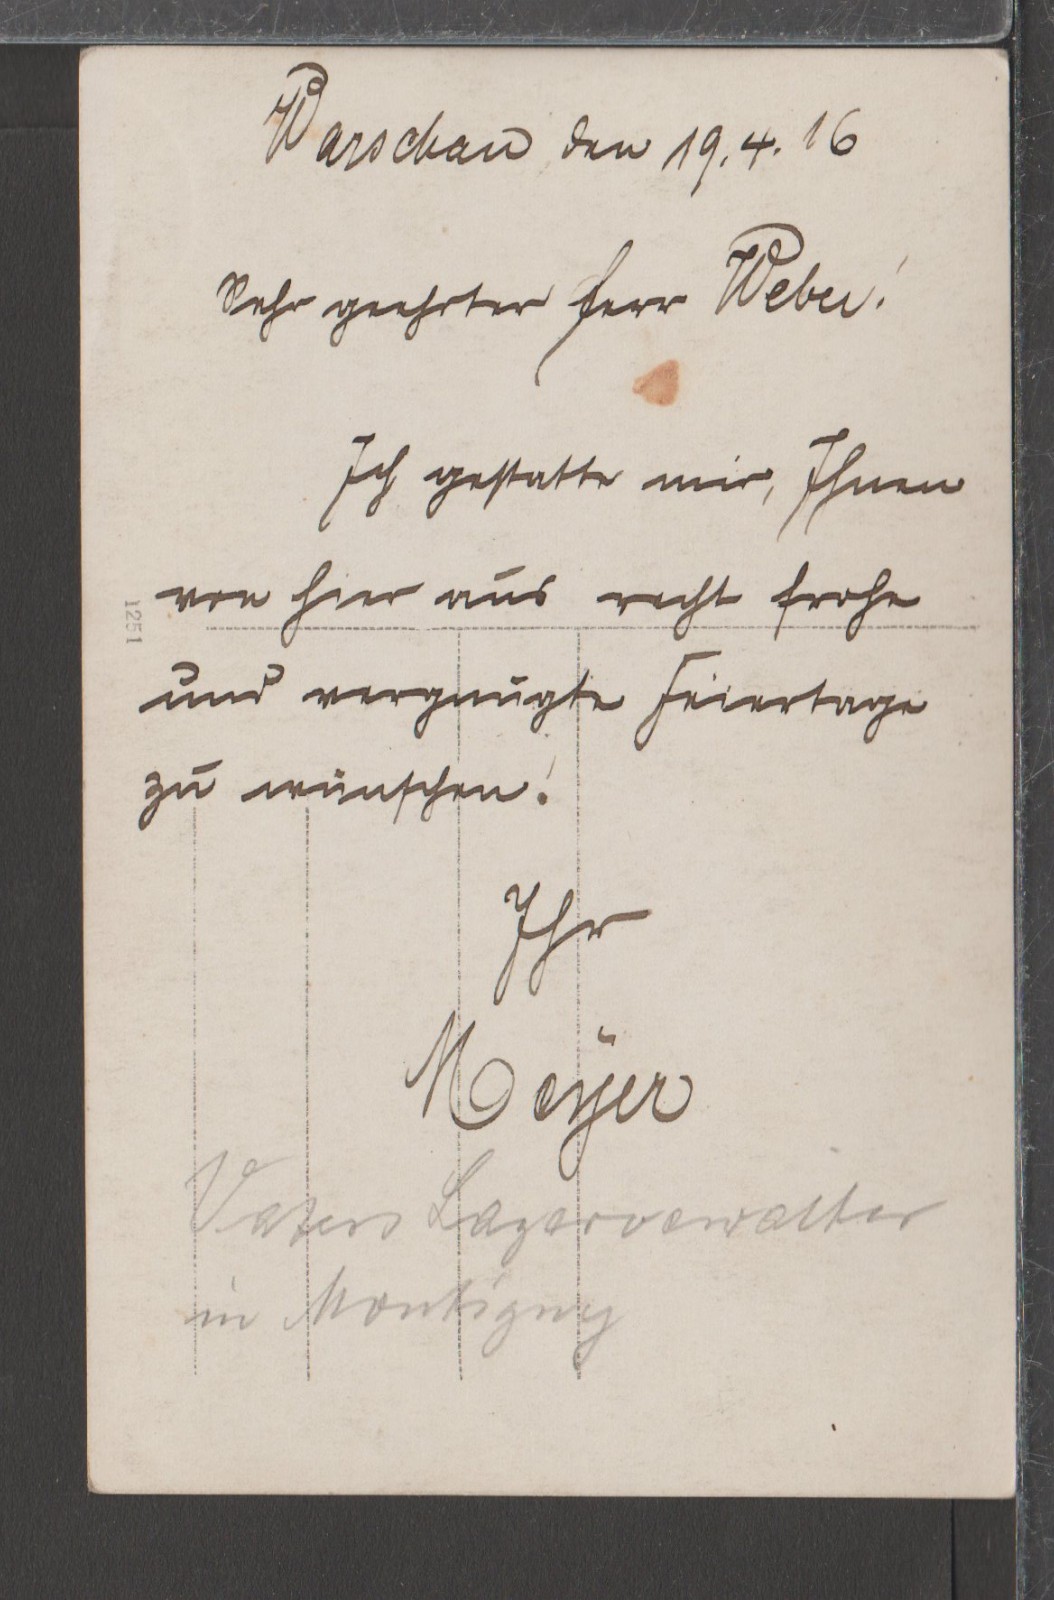 Warschau den 19.4.16
Sehr geehrter Herr Weber!
Ich gestatte mir, Ihnen
von hier aus recht frohe
und vergnügte Feiertage
zu wünschen!
Ihr
Meÿer
Vaters Lagerverwalter
in Montigny
1251